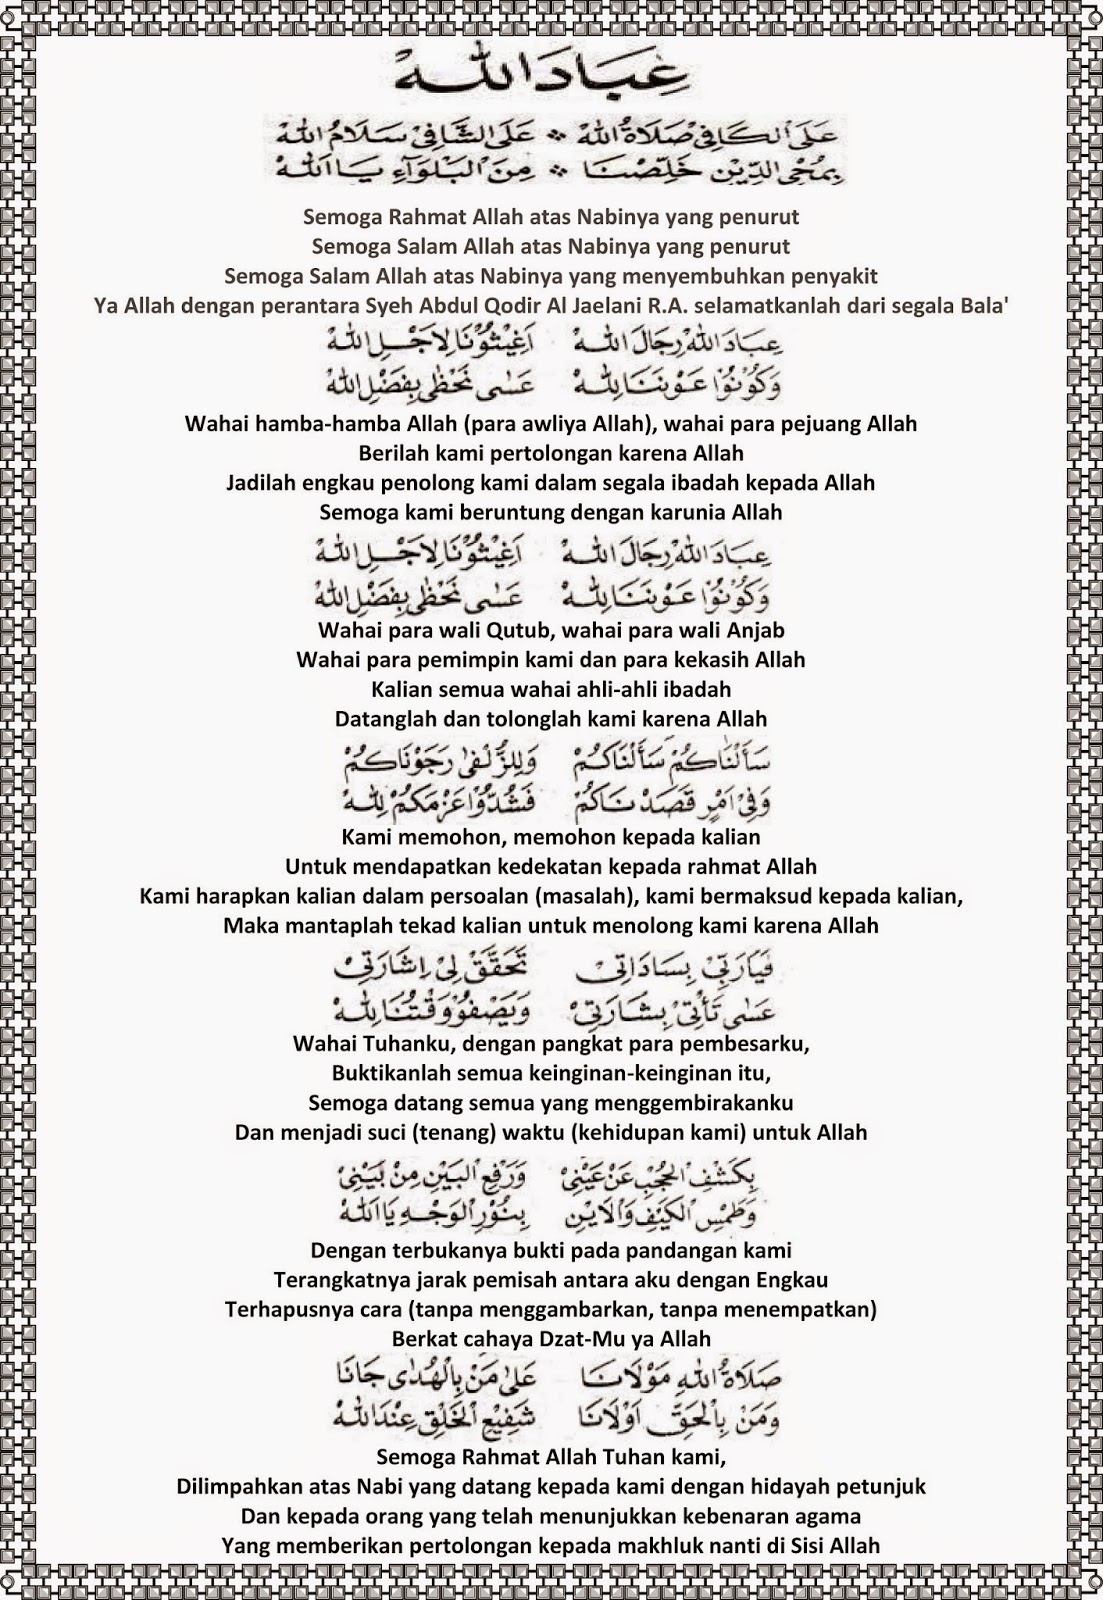 عِبَادَ اللهْ
عَلَى الْكَافِيْ صَلَاةُ اللهْ ❖ عَلَى الشَّافِيْ سَلَامُ اللهْ
بِمُحْيِ الدِّيْنِ خَلِّصْنَا ❖ مِنَ الْبَلْوَآءِ يَا اَللهْ
Semoga Rahmat Allah atas Nabinya yang penurut
Semoga Salam Allah atas Nabinya yang penurut
Semoga Salam Allah atas Nabinya yang menyembuhkan penyakit
Ya Allah dengan perantara Syeh Abdul Qodir Al Jaelani R.A. selamatkanlah dari segala Bala'
عِبَادَ اللهْ رِجَالَ اللهْ اَغِيْثُوْنَا لِاَجْلِ اللهْ
وَكُوْنُوْا عَوْنَنَا لِلّٰهْ عَسٰى نَحْظٰى بِفَضْلِ اللهْ
Wahai hamba-hamba Allah (para awliya Allah), wahai para pejuang Allah
Berilah kami pertolongan karena Allah
Jadilah engkau penolong kami dalam segala ibadah kepada Allah
Semoga kami beruntung dengan karunia Allah
عِبَادَ اللهْ رِجَالَ اللهْ اَغِيْثُوْنَا لِاَجْلِ اللهْ
وَكُوْنُوْا عَوْنَنَا لِلّٰهْ عَسٰى نَحْظٰى بِفَضْلِ اللهْ
Wahai para wali Qutub, wahai para wali Anjab
Wahai para pemimpin kami dan para kekasih Allah
Kalian semua wahai ahli-ahli ibadah
Datanglah dan tolonglah kami karena Allah
سَأَلْنَاكُمْ سَأَلْنَاكُمْ وَلِلزُّلْفٰى رَجَوْنَاكُمْ
وَفِيْ اَمْرٍ قَصَدْنَاكُمْ فَشُدُّوْا عَزْمَكُمْ لِلّٰهْ
Kami memohon, memohon kepada kalian
Untuk mendapatkan kedekatan kepada rahmat Allah
Kami harapkan kalian dalam persoalan (masalah), kami bermaksud kepada kalian,
Maka mantaplah tekad kalian untuk menolong kami karena Allah
فَيَارَبِّيْ بِسَادَاتِيْ تَحَقَّقْ لِيْ اِشَارَتِيْ
عَسٰى تَأْتِيْ بِشَارَتِيْ وَيَصْفُوْ وَقْتُنَا لِلّٰهْ
Wahai Tuhanku, dengan pangkat para pembesarku,
Buktikanlah semua keinginan-keinginan itu,
Semoga datang semua yang menggembirakanku
Dan menjadi suci (tenang) waktu (kehidupan kami) untuk Allah
بِكَشْفِ الْحُجْبِ عَنْ عَيْنِيْ وَرَفْعِ الْبَيْنِ مِنْ بَيْنِيْ
وَطَمْسِ الْكَيْفِ وَالْاَيْنِ بِنُوْرِ الْوَجْهِ يَا اَللهْ
Dengan terbukanya bukti pada pandangan kami
Terangkatnya jarak pemisah antara aku dengan Engkau
Terhapusnya cara (tanpa menggambarkan, tanpa menempatkan)
Berkat cahaya Dzat-Mu ya Allah
صَلَاةُ اللهِ مَوْلَانَا عَلٰى مَنْ بِالْهُدٰى جَانَا
وَمَنْ بِالْحَقِّ اَوْلَانَا شَفِيْعِ الْخَلْقِ عِنْدَ اللهْ
Semoga Rahmat Allah Tuhan kami,
Dilimpahkan atas Nabi yang datang kepada kami dengan hidayah petunjuk
Dan kepada orang yang telah menunjukkan kebenaran agama
Yang memberikan pertolongan kepada makhluk nanti di Sisi Allah